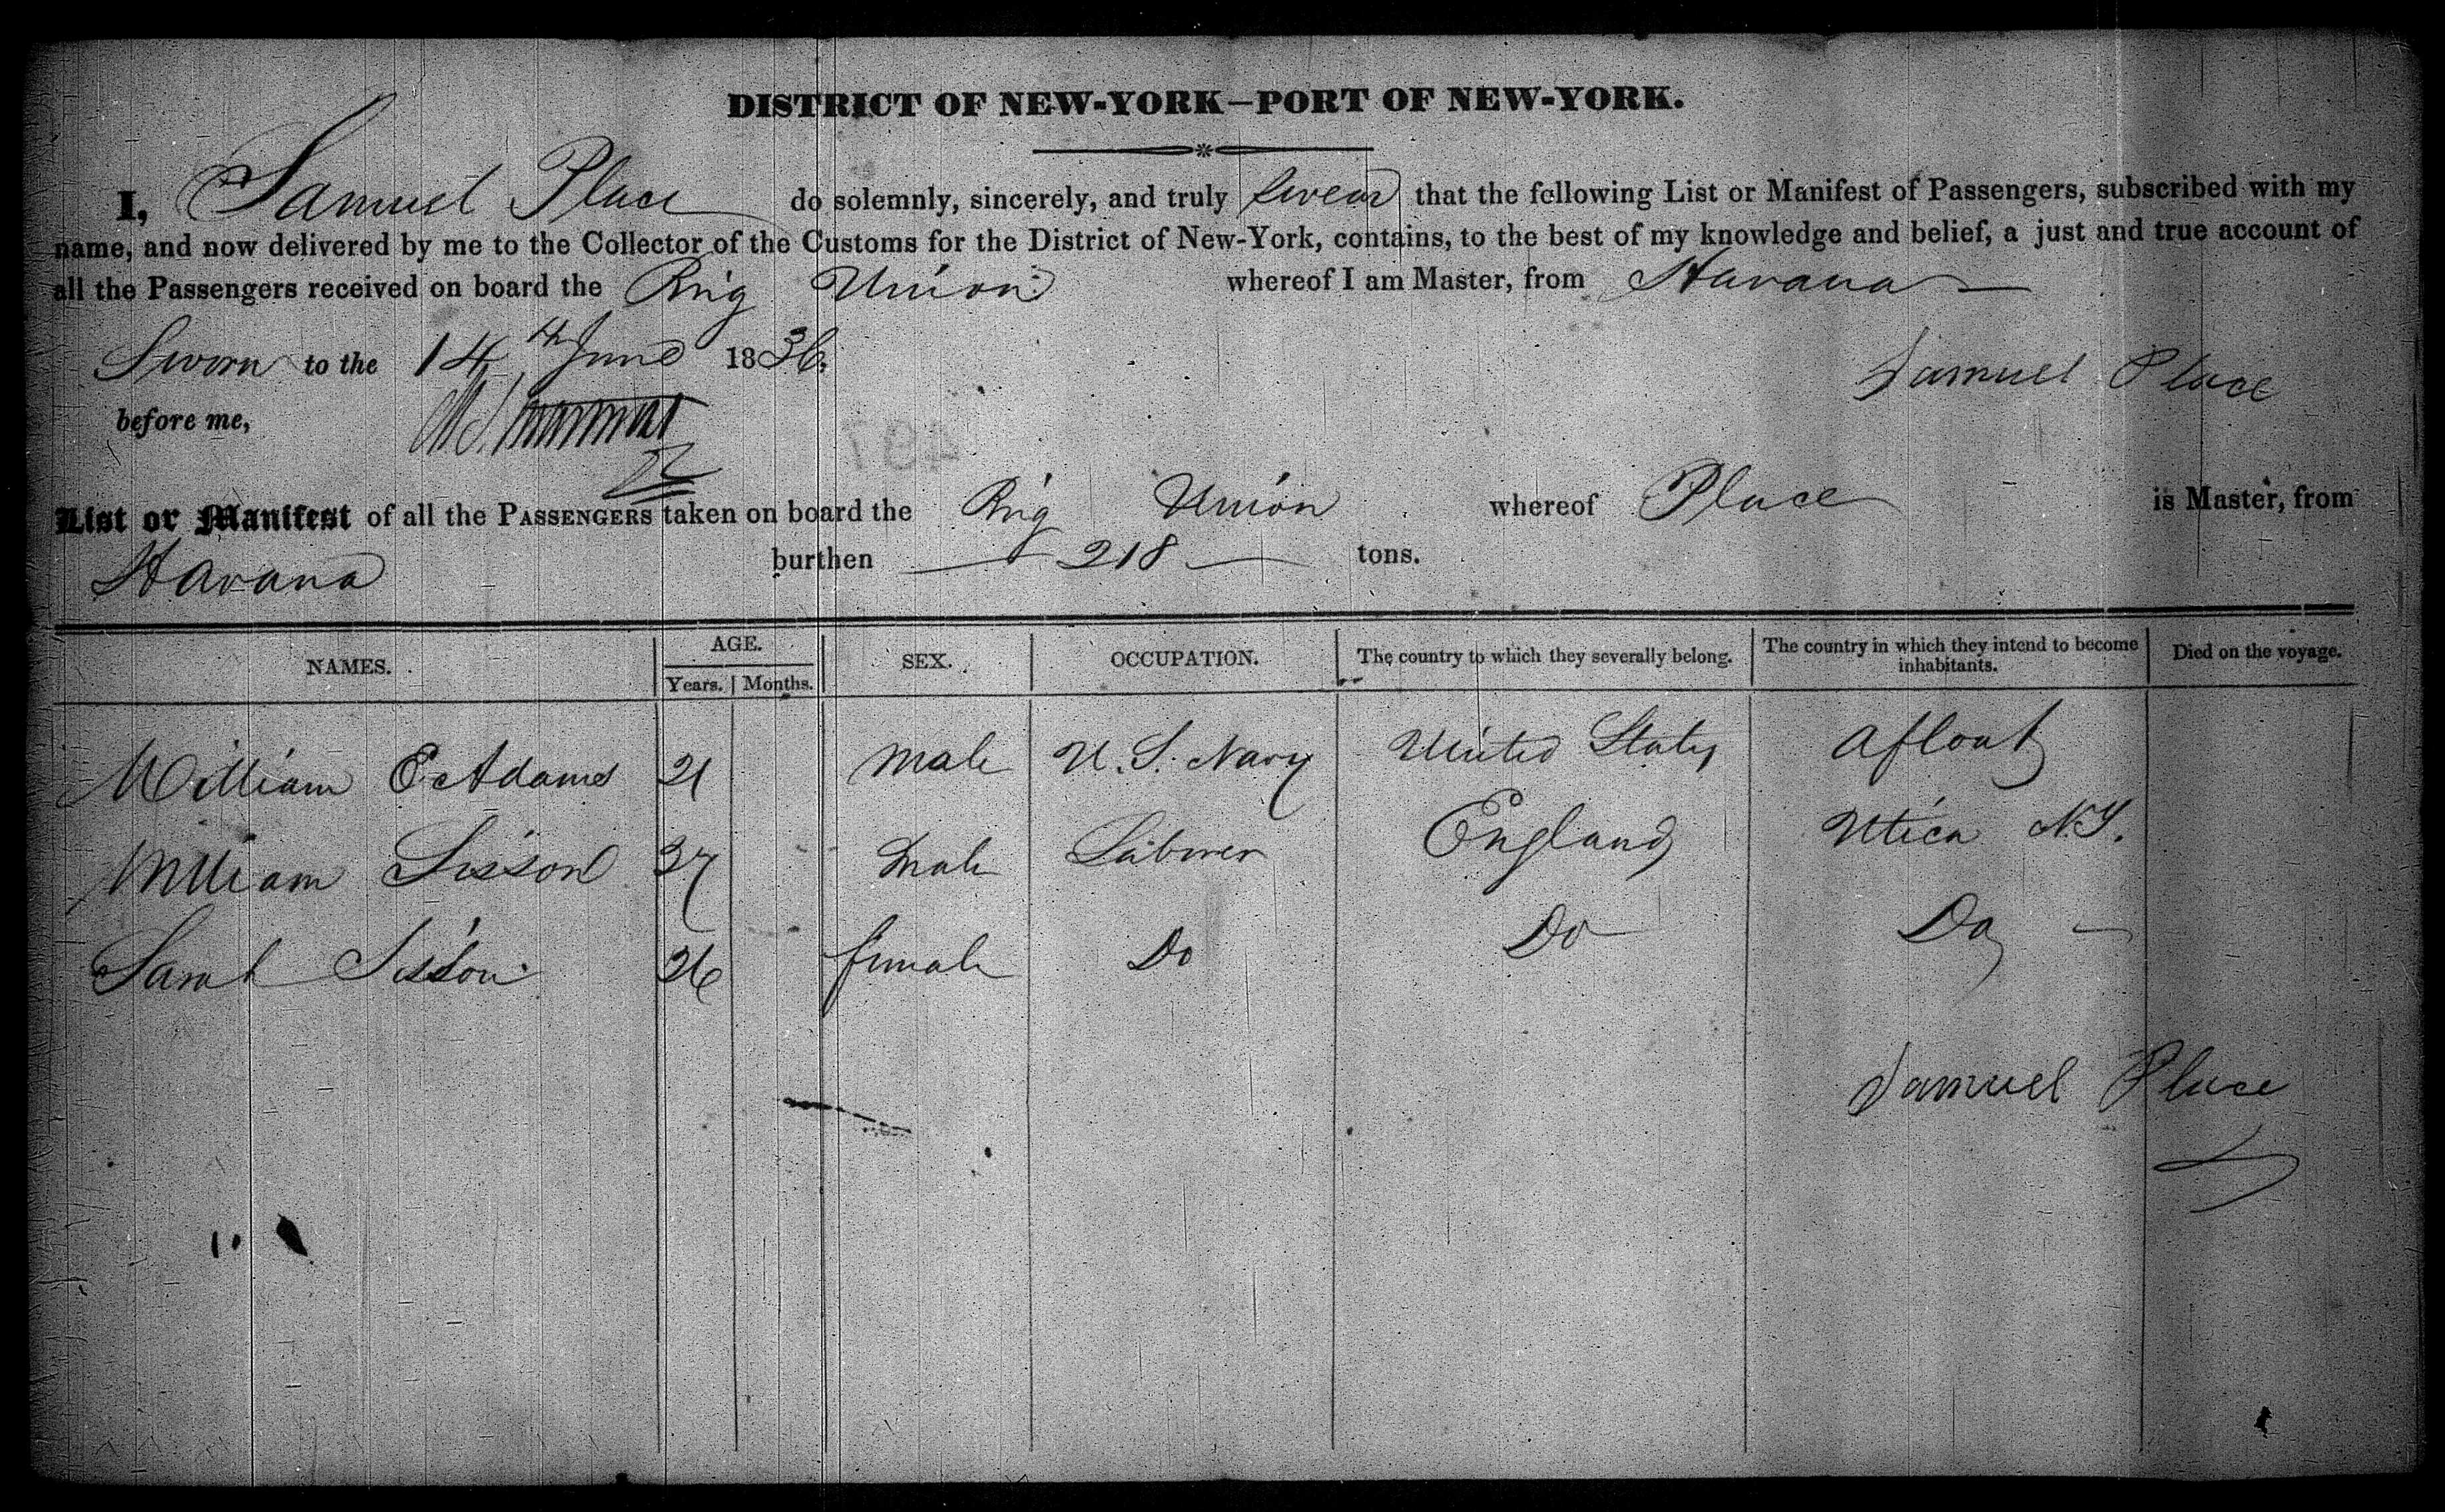 DISTRICT OF NEW-YORK—PORT OF NEW-YORK.
I, Samuel Place do solemnly, sincerely, and truly swear that the following List or Manifest of Passengers, subscribed with my
name, and now delivered by me to the Collector of the Customs for the District of New-York, contains, to the best of my knowledge and belief, a just and true account of
all the Passengers received on board the Brig Union whereof I am Master, from Havana
Sworn to the 14th June 1836. Samuel Place
before me,
List or Manifest of all the PASSENGERS taken on board the Brig Union whereof Place is Master, from
Havana burthen 218 tons.
NAMES. AGE. Years. Months. SEX. OCCUPATION. The country to which they severally belong. The country in which they intend to become inhabitants. Died on the voyage.
William E Adams 21 male U.S. Navy United States Afloat
William Sisson 37 male Laborer England Utica N.Y.
Sarah Sisson 26 female Do Do Do
Samuel Place